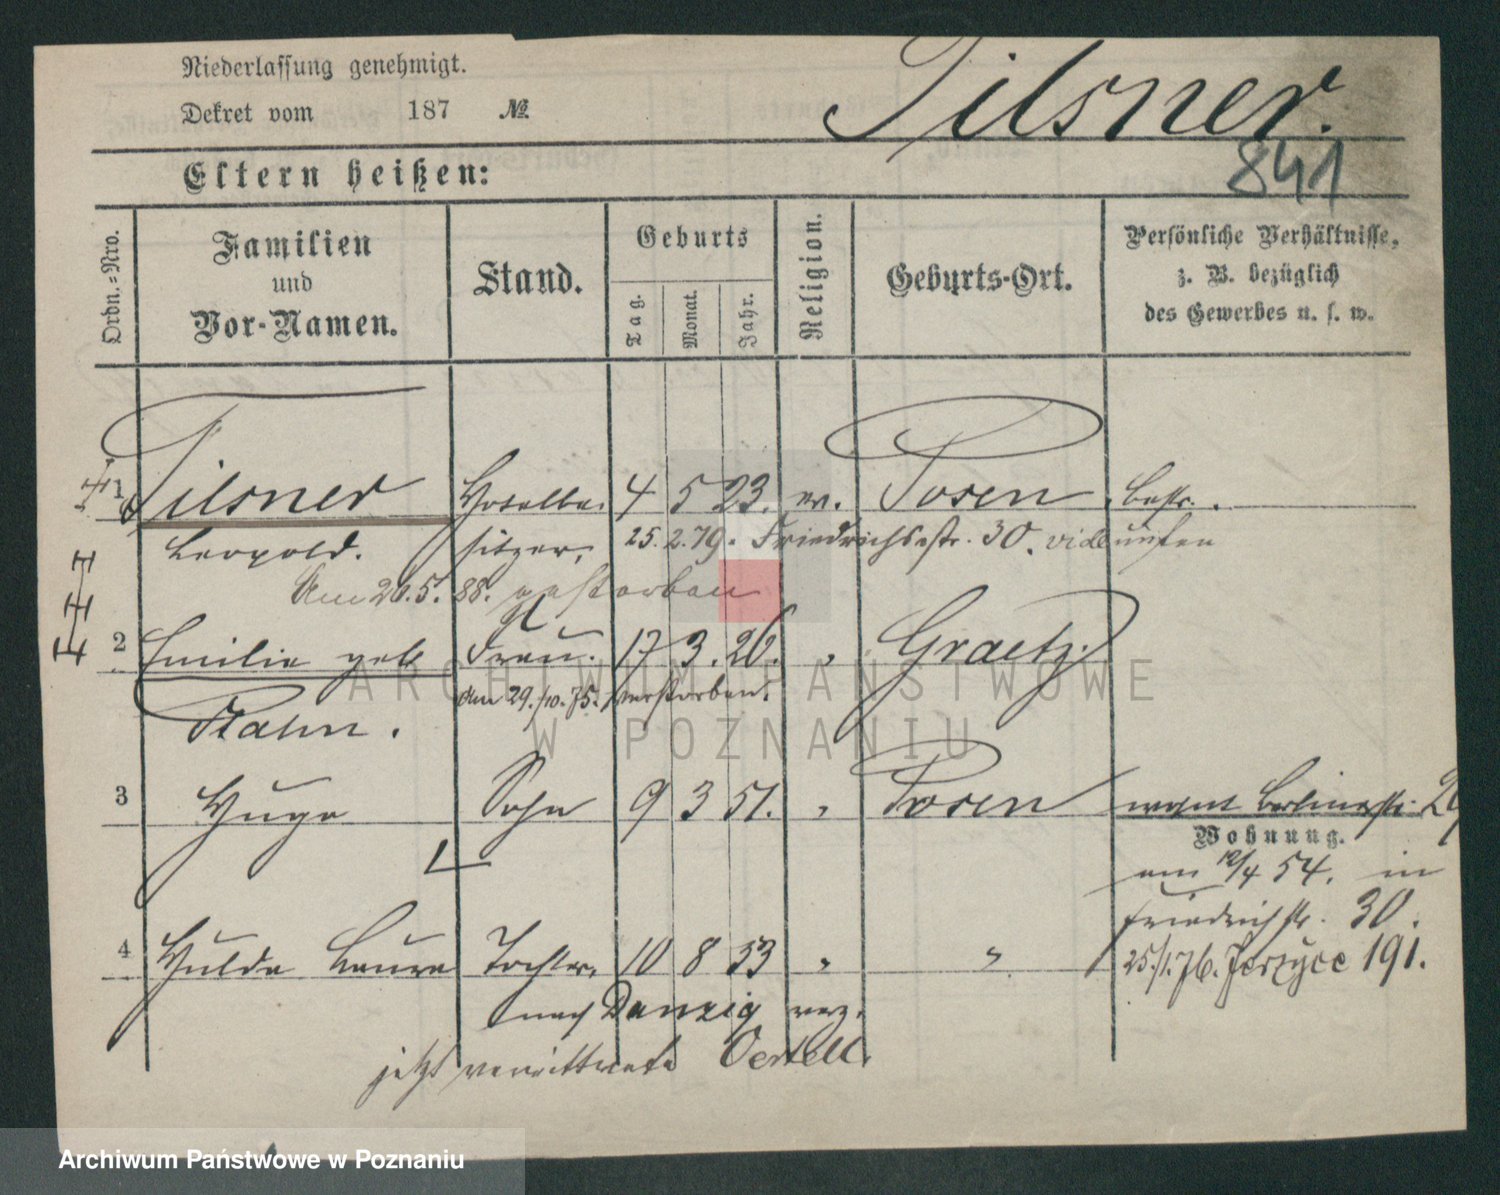 Niederlassung genehmigt.
Dekret vom 187 №
Pilsner.
841
Eltern heißen:
Ordn.=Nro.
Familien und Vor-Namen.
Stand.
Geburts
Tag. Monat. Jahr.
Religion.
Geburts-Ort.
Persönliche Verhältnisse, z. B. bezüglich des Gewerbes u. s. w.
1 Pilsner Hotelbe- 4 5 23. ev. Posen
Leopold. sitzer, 25.2.79. Friedrichsstr. 30. vide unten
Am 20.5.88. gestorben
2 Emilie geb Frau. 17 3. 26. " Graetz.
Am 29./10. 75. verstorben.
Rahn.
3 Hugo Sohn 9 3 51. " Posen wohnt Berlinerstr. 29
Wohnung.
am 12/4 54. in
Friedrichstr. 30.
4 Hulda Laura Tochter, 10 8 53 " " 25./1.76. Jerzyce 191.
nach Danzig verz.
jetzt verwittwete Oertell.
ARCHIWUM PAŃSTWOWE
W POZNANIU
Archiwum Państwowe w Poznaniu